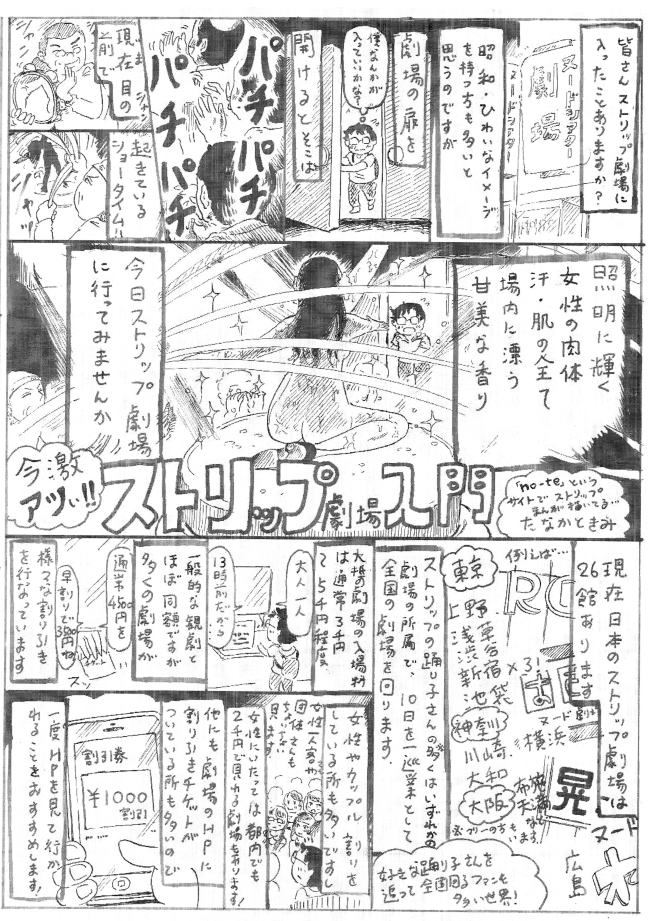 皆さんストリップ劇場に
入ったことありますか?
ヌードシアター
劇場
ヌードシアター
昭和・ひわいなイメージ
を持つ方も多いと
思うのですが
劇場の扉を
僕なんかが
入っていいかな?
開けるとそこは
パチ
パチ
パチ
パチ
現在目の
まえ
前で
ジャン
ジャン
起きている
ショータイム!!
ジャッ
照明に輝く
女性の肉体
汗・肌の全て
場内に漂う
甘美な香り
今日ストリップ劇場
に行ってみませんか
今激
アツい!!
ストリップ劇場入門
「no-te」という
サイトでストリップ
まんが描いてる…
たなかときみ
現在日本のストリップ劇場は
26館あります
例えば…
東京
上野
浅草
渋谷
新宿
池袋
×3!
ヌード劇場
神奈川
川崎
横浜
大和
大阪
晃
ヌード
広島
など
あります
ストリップの踊り子さんの多くはいずれかの
劇場の所属で、10日を一巡業として
全国の劇場を回ります
※フリーの方もい
ます
好きな踊り子さんを
追って全国回るファンも
多い世界!
大抵の劇場の入場料
は通常3千円
〜5千円程度
大人一人
13時前だから
一般的な観劇と
ほぼ同額ですが
多くの劇場が
通常4500円を
早割りで3500円ね
スッ
様々な割り引き
を行なっています
女性やカップル割りを
している所も多いですし
女性一人客や
団体さんも
ちょいちょい
見ます
女性にいたっては都内でも
2千円で見れる劇場もあります!
他にも劇場のHPに
割り引きチケットが
ついている所も多いので
割引券
¥1000
割引
一度HPを見て行か
れることをおすすめします!